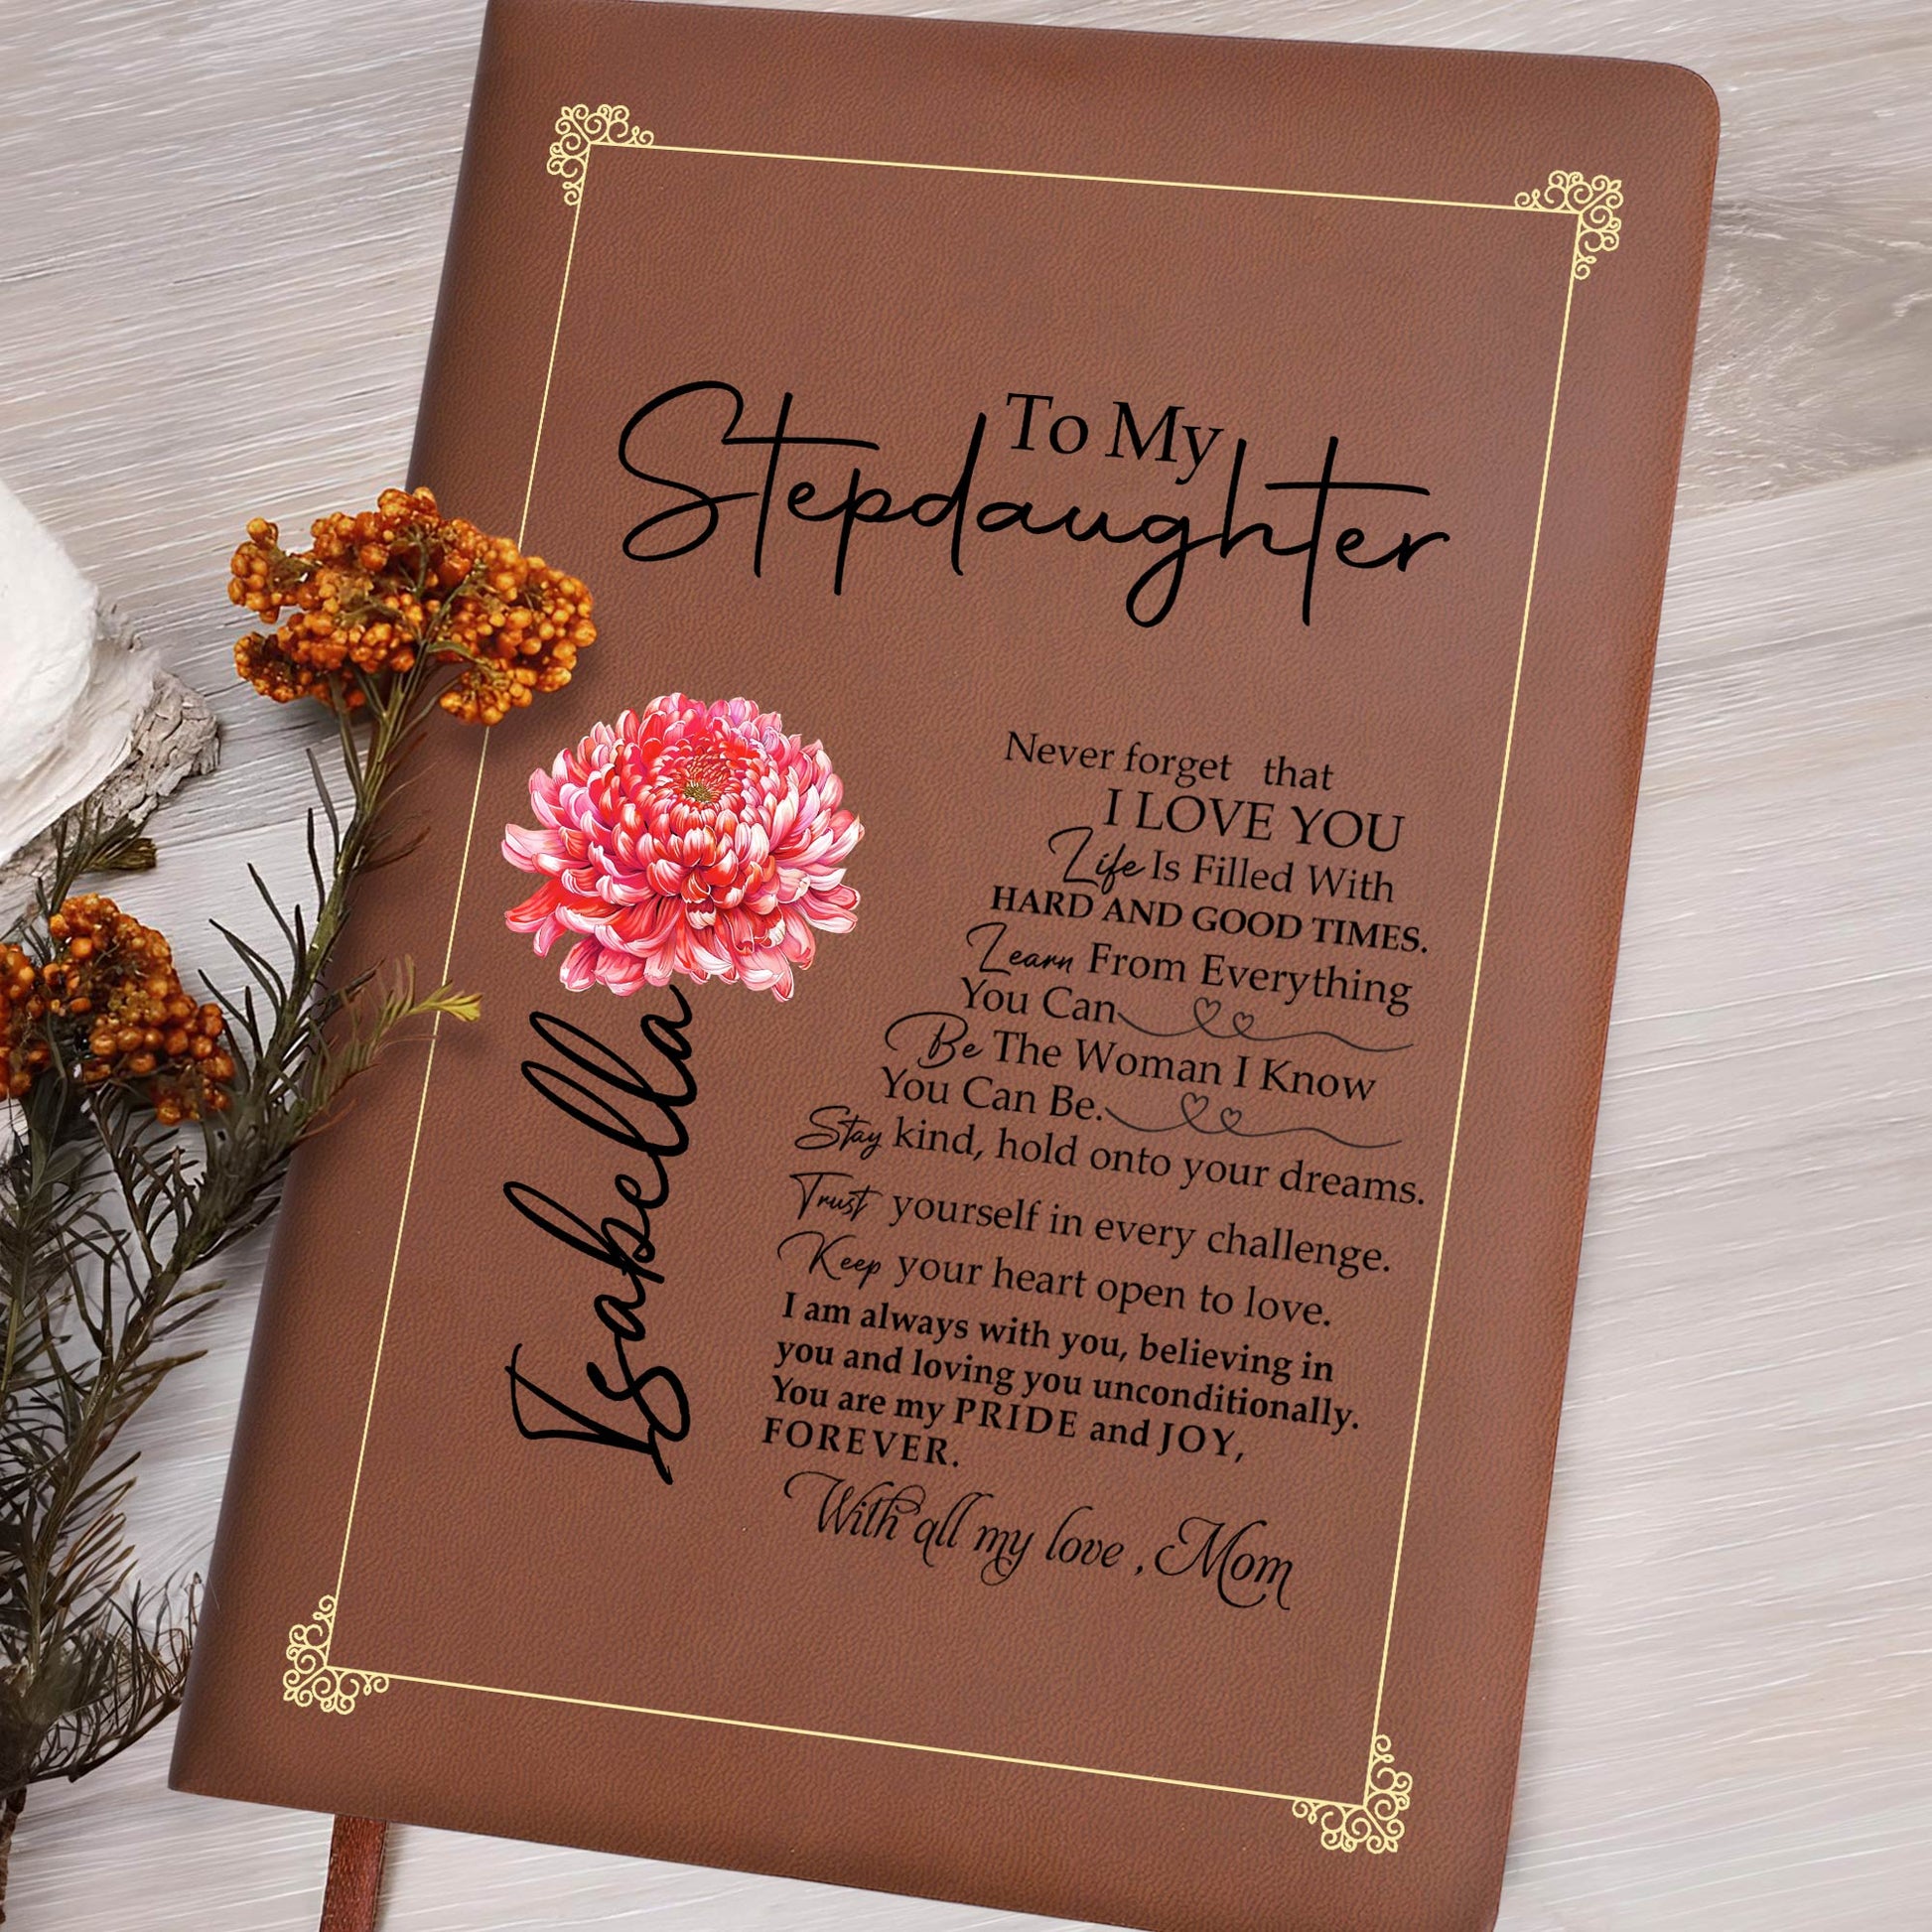 To My
Stepdaughter
Never forget that
I LOVE YOU
Life Is Filled With
HARD AND GOOD TIMES.
Learn From Everything
You Can
Be The Woman I Know
You Can Be.
Stay kind, hold onto your dreams.
Trust yourself in every challenge.
Keep your heart open to love.
I am always with you, believing in
you and loving you unconditionally.
You are my PRIDE and JOY,
FOREVER.
With all my love , Mom
Isabella